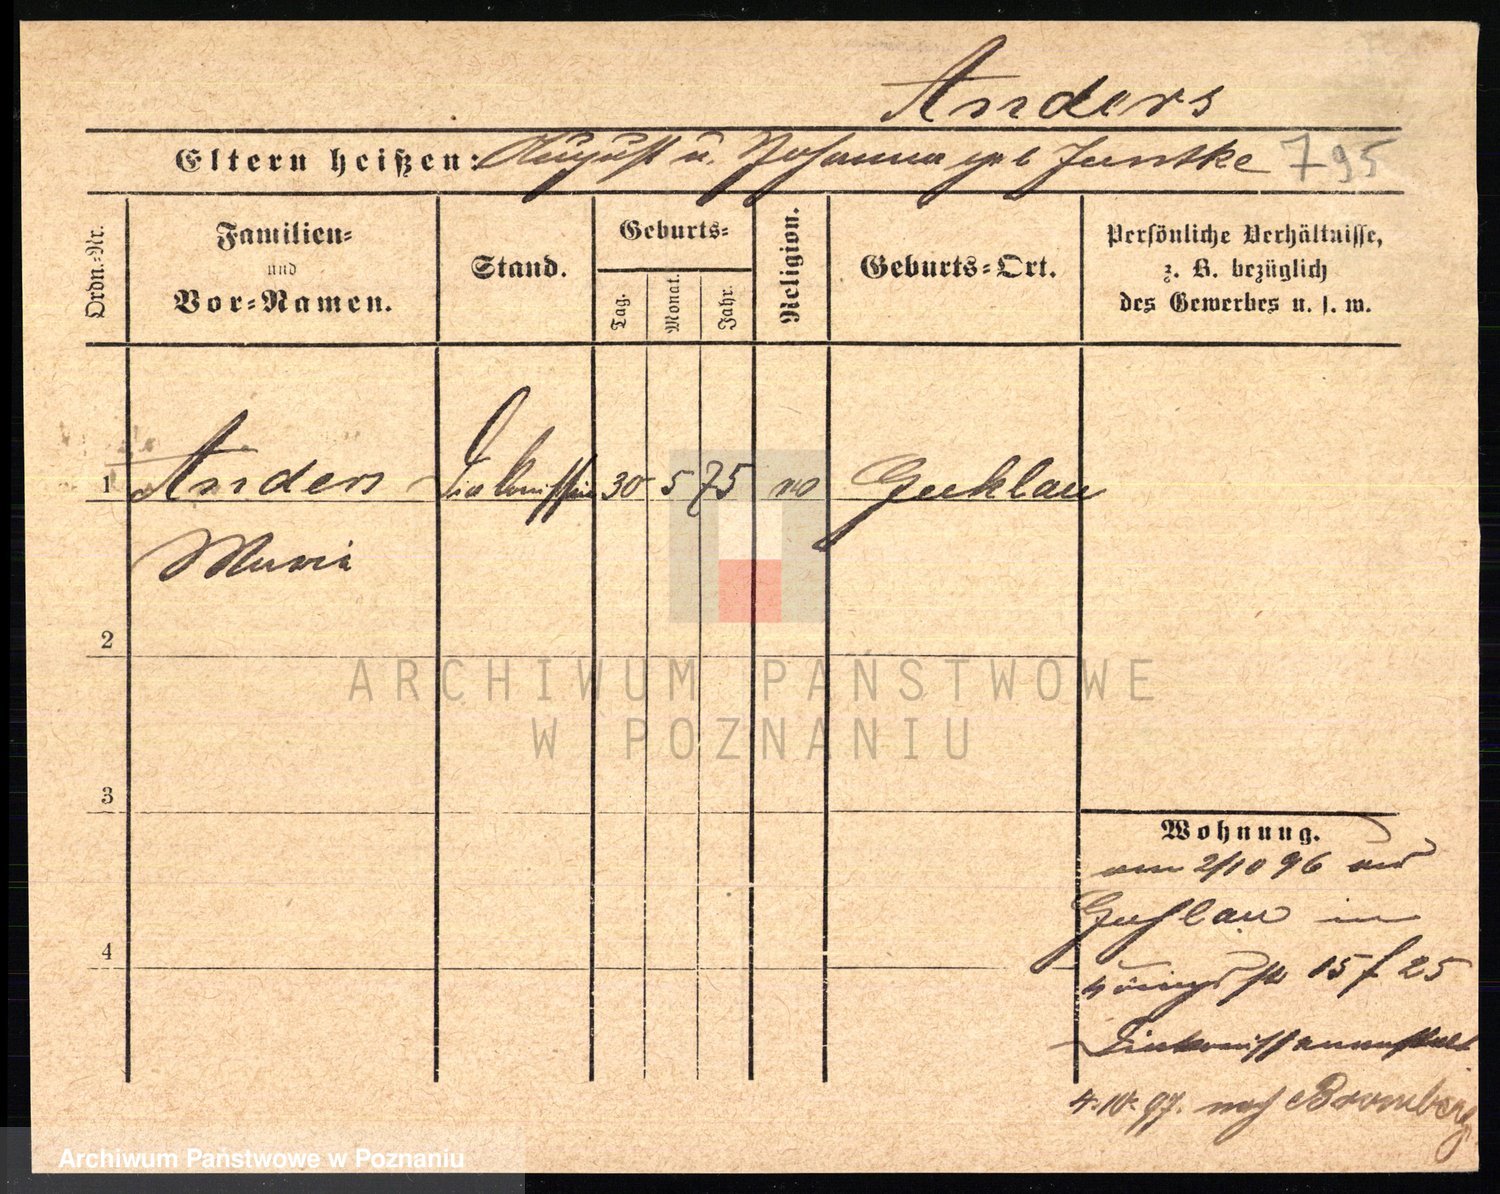 Anders
Eltern heißen: August u. Johanna geb Jantke 795
Ordn.-Nr.
Familien-
und
Vor-Namen.
Stand.
Geburts-
Tag.
Monat.
Jahr.
Religion.
Geburts-Ort.
Persönliche Verhältnisse,
z. B. bezüglich
des Gewerbes u. s. w.
1 Anders Diakonissin 30 5 75 Guhlau
Maria
2
3
4
Wohnung.
2/10 96 aus
Guhlau in
Königsstr 15 f 25
Diakonissenanstalt
4.10.97. nach Bromberg
ARCHIWUM PAŃSTWOWE
W POZNANIU
Archiwum Państwowe w Poznaniu